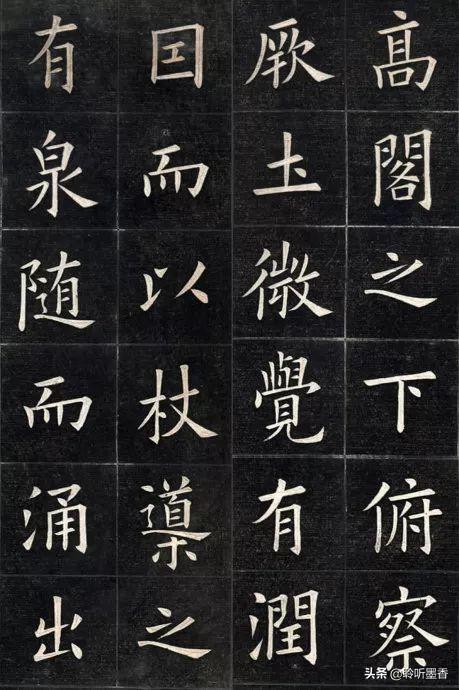 髙閣之下俯察
厥圡微覺有潤
因而以杖導之
有泉随而涌出
头条 @聆听墨香